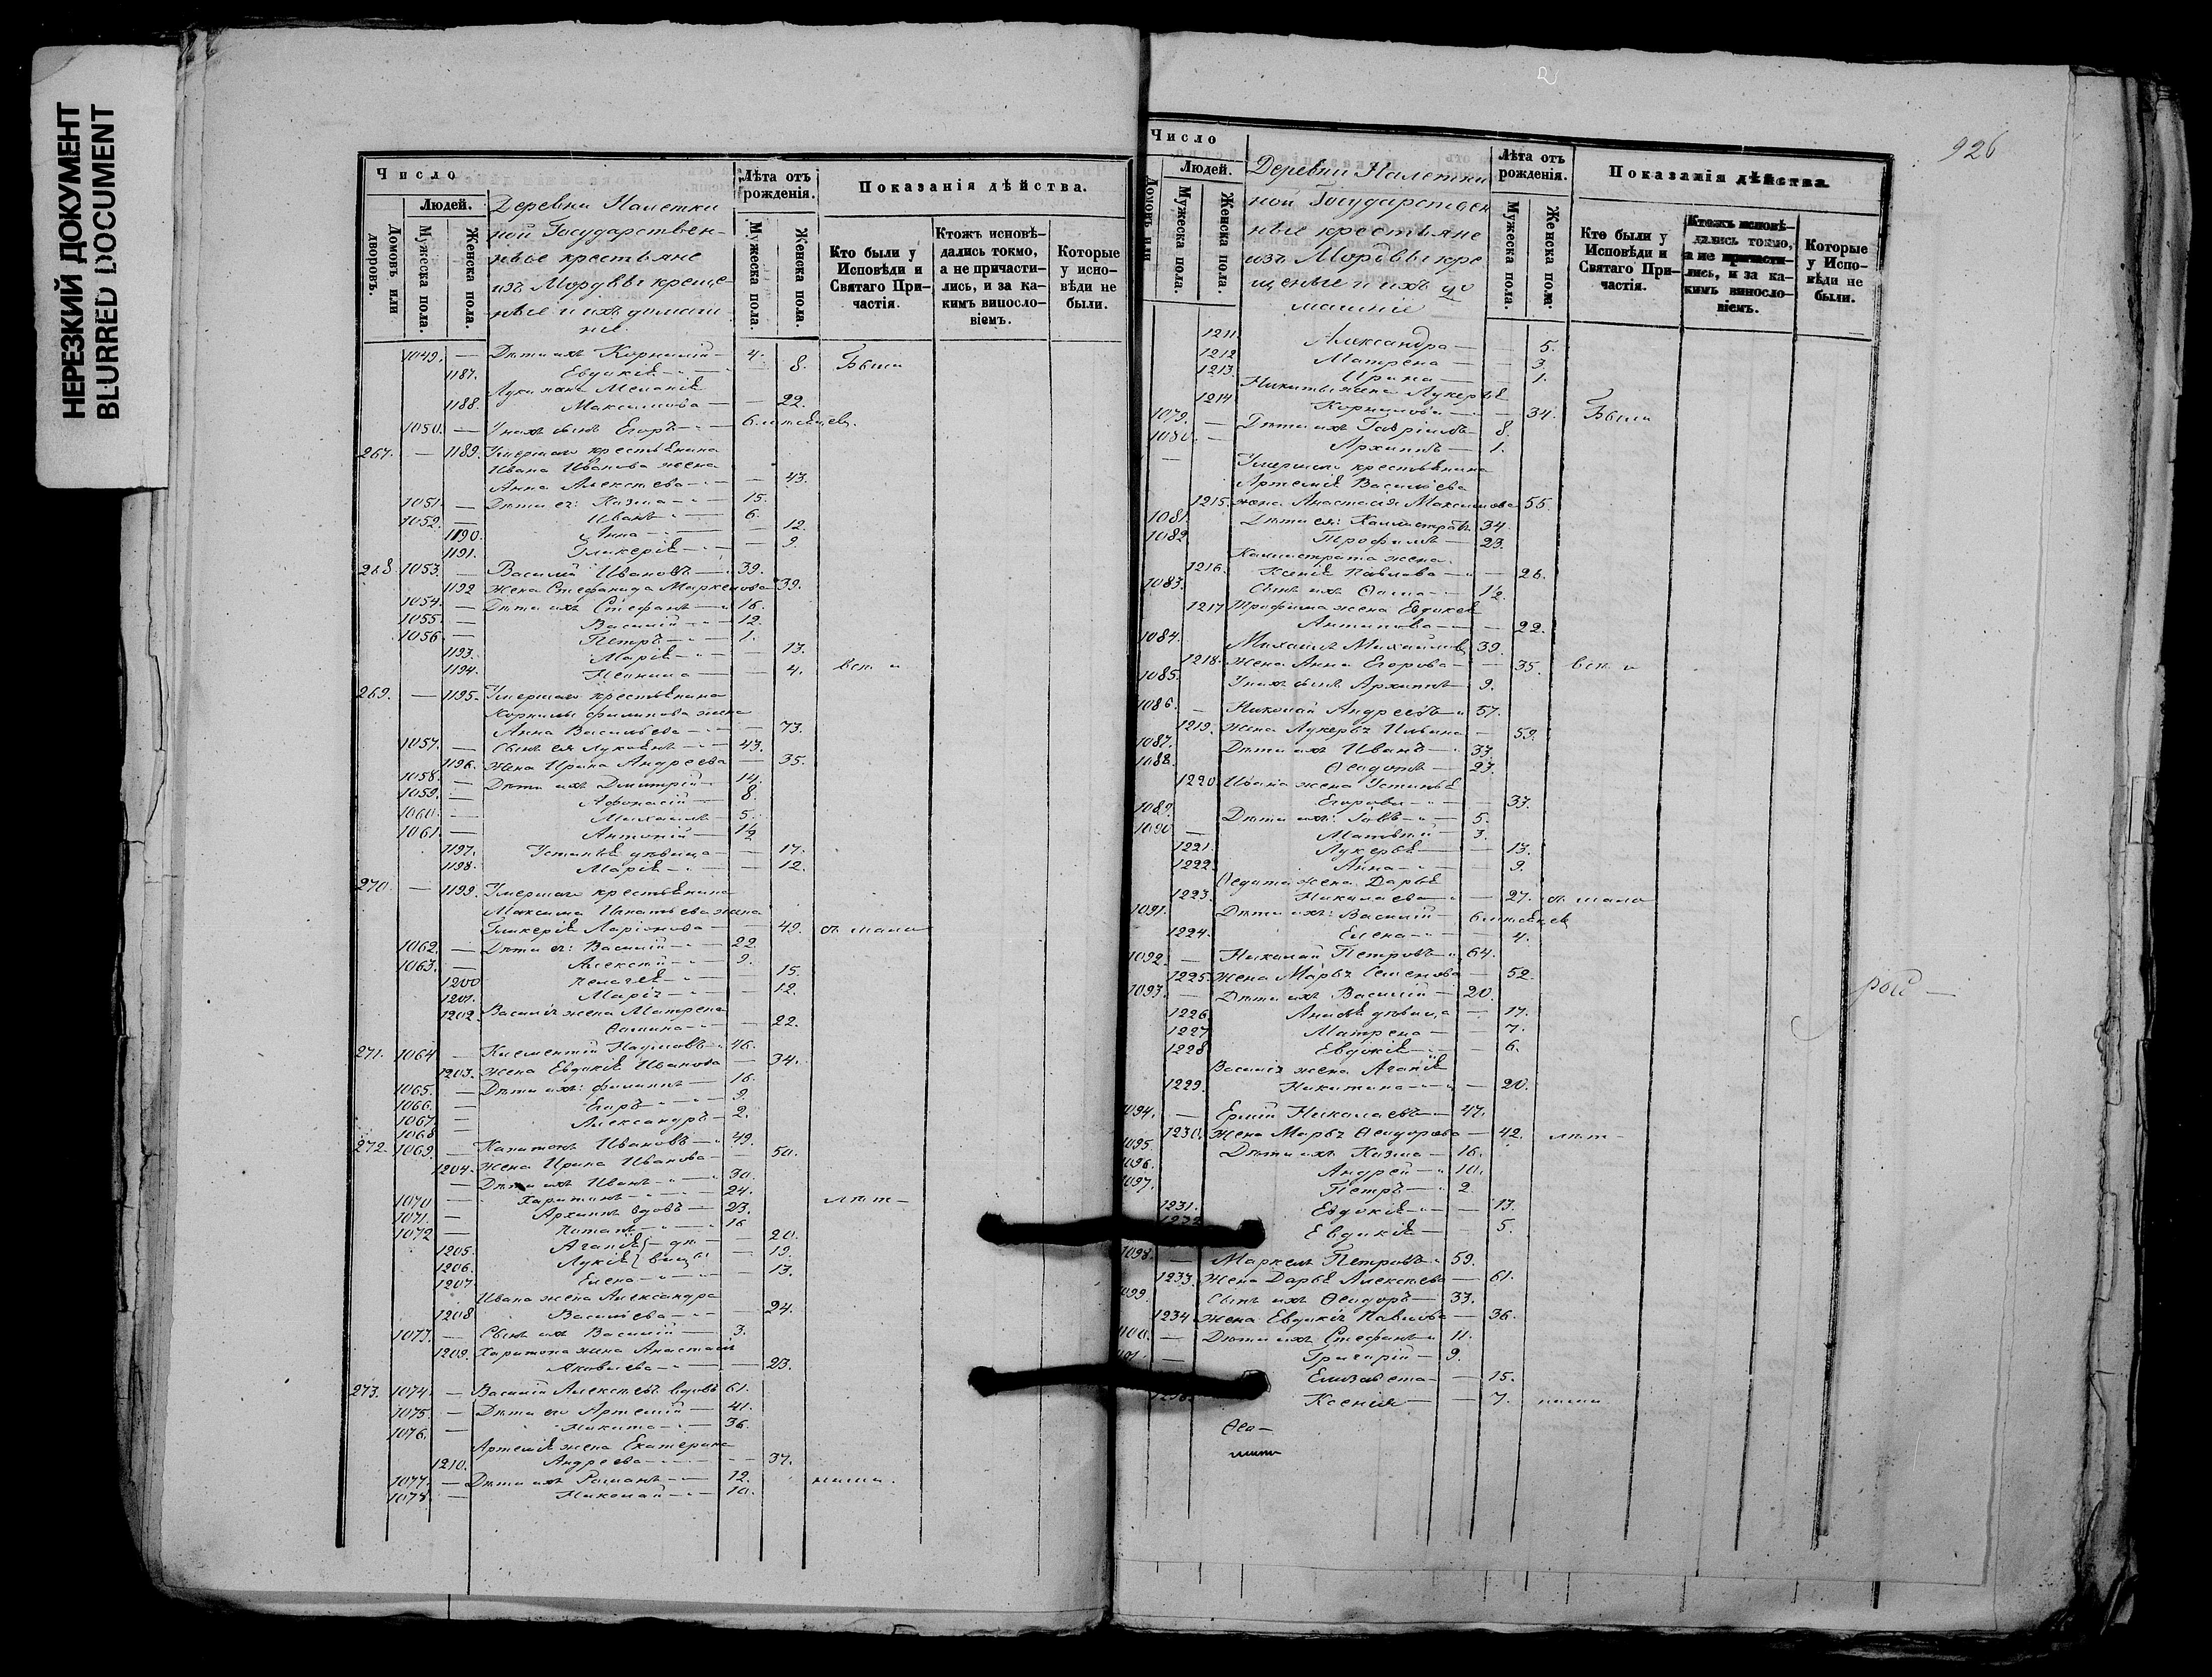 НЕРЕЗКИЙ ДОКУМЕНТ
BLURRED DOCUMENT
Число
Людей.
Домовъ или дворовъ.
Мужеска пола.
Женска пола.
Деревни Налетки
ной Государствен-
ные крестьяне
изъ Мордвы креще-
ные и ихъ домаш
ніе
Лѣта отъ рожденія.
Мужеска пола.
Женска пола.
Показанія дѣйства.
Кто были у Исповѣди и Святаго При-частія.
Ктожъ исповѣ-дались токмо, а не причасти-лись, и за ка-кимъ винословіемъ.
Которые у испо-вѣди не были.
1049. — Дѣти ихъ Корнилій — 4.
1187. Евдокія — 8. Были
Луки жена Меланія
1188. Максимова — — 22.
1050. — У нихъ сынъ Егоръ — 6.
267. — 1189. Умершаго крестьянина
Ивана Иванова жена
Анна Алексѣева — — 43.
1051. — Дѣти ея: Козма — 15.
1052. — Иванъ — 6.
1190. Анна — — 12.
1191. Гликерія — — 9.
268 1053. — Василій Ивановъ — 39.
1192 Жена Степанида Маркелова 39.
1054. — Дѣти ихъ Стефанъ — 16.
1055. — Василій — 12.
1056 — Петръ — 1.
1193. Марія — — 13.
1194. — 4.
269. — 1195. Умершаго крестьянина
Корнилы Филипова жена
Анна Васильева — — 73.
1057. — Сынъ ея Лукіянъ — 43.
1196. Жена Ирина Андреева — 35.
1058. — Дѣти ихъ Димитрій — 14.
1059. — Афонасій — 8.
1060. — Михаилъ — 5.
1061. — Антоній — 1½
1197. Устинья дѣвица — — 17.
1198. Марія — — 12.
270. — 1199. Умершаго крестьянина
Максима Игнатьева жена
Гликерія Ларіонова — — 49.
1062. — Дѣти ея: Василій — 22.
1063. — Алексѣй — 9.
1200 Пелагея — 15.
1201. Марія — — 12.
1202. Василія жена Матрена
Фомина — — 22.
271. 1064 — Климентій Наумовъ — 46.
1203. Жена Евдокія Иванова — 34.
1065. — Дѣти ихъ: Филиппъ — 16.
1066. — Егоръ — 9.
1067. — Александръ — 2.
1068
272. 1069. — Капитонъ Ивановъ — 49.
1204. Жена Ирина Иванова — 50.
— Дѣти ихъ Иванъ — 30.
1070 — Харитонъ — 24.
1071. — Архипъ вдовъ — 23.
1072 — — 16
1205. Агафія } дѣ — — 20.
1206. Лукія } вицы — 19.
1207 Елена — — 13.
Ивана жена Александра
1208 Васильева — — 24.
1073. — Сынъ ихъ Василій — 3.
1209. Харитона жена Анастасія
Яковлева — — 23.
273. 1074. — Василій Алексѣевъ вдовъ 61.
1075. — Дѣти его Артемій — 41.
1076. — Никита — 36.
Артемія жена Екатерина
1210. Андреева — — 37.
1077. — Дѣти ихъ Романъ — 12.
1078. — Николай — 10.
926
Число
Людей.
Домовъ или
Мужеска пола.
Женска пола.
Деревни Налетки
ной Государствен
ные крестьяне
изъ Мордвы кре
щеные и ихъ до
машніе
Лѣта отъ рожденія.
Мужеска пола.
Женска пола.
Показанія дѣйства.
Кто были у Исповѣди и Святаго При-частія.
Ктожъ исповѣ-дались токмо, а не причасти-лись, и за ка-кимъ винословіемъ.
Которые у Испо-вѣди не были.
1211. Александра — 5.
1212 Матрена — 3.
1213. Ирина — 1.
Никиты жена Лукерья
1214 Корнилова — — 34. Были
1079. — Дѣти ихъ Гавріилъ — 8.
1080. — Архипъ — 1.
— Умершаго крестьянина
Артемія Васильева
1215. жена Анастасія Максимова 55.
1081. Дѣти ея: Каллистратъ 34.
1082. Трофимъ — 23.
Каллистрата жена
1216. Ксенія Павлова — — 26.
1083. Сынъ ихъ Фома — 1½.
1217 Трофима жена Евдокія
Антипова — — 22.
1084. Михаилъ Михайловъ 39.
1218. Жена Анна Егорова — — 35.
1085. У нихъ сынъ Архипъ — 9.
1086. — Николай Андреевъ — 57.
1219. Жена Лукерья Ильина — 59.
1087. Дѣти ихъ Иванъ — 33.
1088. Ѳедотъ — 23.
1220 Ивана жена Устинья
Егорова — — 33.
1089. Дѣти ихъ: Іовъ — 5.
1090 — Матвѣй — 3.
1221. Лукерья — — 13.
1222. Анна — — 9.
Ѳедота жена Дарья
1223. Николаева — — 27.
1091. Дѣти ихъ: Василій — 6
1224. Елена — — 4.
1092. — Николай Петровъ — 64.
1225. Жена Марья Семенова — 52.
1093. — Дѣти ихъ Василій — 20.
1226. дѣвица — 17.
1227 Матрена — — 7.
1228 Евдокія — — 6.
Василія жена Агафія
1229. Никитина — — 20.
1094. — Ермій Николаевъ — 47.
1230. Жена Марья Ѳеодорова — 42.
1095. Дѣти ихъ Козма — 16.
1096. Андрей — 10.
1097. Петръ — 2
1231. Евдокія — — 13.
1232 Евдокія — — 5.
1098. — Маркелъ Петровъ — 59.
1233. Жена Дарья Алексѣева — 61.
1099. Сынъ ихъ Ѳеодоръ — 33.
1234 Жена Евдокія Павлова — 36.
1100. — Дѣти ихъ Стефанъ — 11.
— Григорій — 9.
Елизавета — — 15.
Ксенія — — 7.